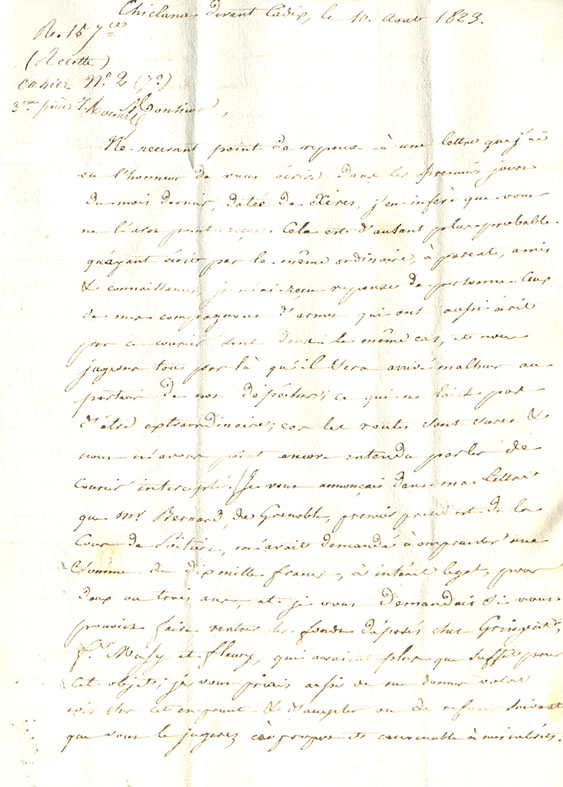 Chiclana devant Cadix, le 10 Aout 1823.
Re. 15 7bre
(Recette)
cahier N° 2 (7°)
3me pièce
Monsieur,
Ne recevant point de reponse à une lettre que j'ai
eu l'honneur de vous écrire dans les premiers jours
du mois dernier, datée de Xérès, j'en infère que vous
ne l'avez point reçue. Cela est d'autant plus probable
qu'ayant écrit par le même ordinaire, à parens, amis
& connaissances, je n'ai reçu reponse de personne. Ceux
de mes compagnons d'armes qui ont aussi écrit
par ce courier sont dans le même cas, et nous
jugeons tous par là qu'il sera arrivé malheur au
porteur de nos dépêches; ce qui ne laisse pas
d'être extraordinaire; car les routes sont sures &
nous n'avons point encore entendu parler de
courier intercepté. Je vous annonçais dans ma lettre
que Mr. Bernard, de Grenoble, premier président de la
Cour de Poitiers, m'avait demandé à emprunter une
somme de dix mille francs, à intérêt légal, pour
deux ou trois ans, et je vous demandais si vous
pouviez faire rentrer les fonds déposés chez
et Fleury, qui auraient plus que suffi pour
cet objet; je vous priais aussi de me donner votre
avis sur cet emprunt & d'accepter ou de refuser suivant
que vous le jugerez à propos et convenable à mes intérêts.